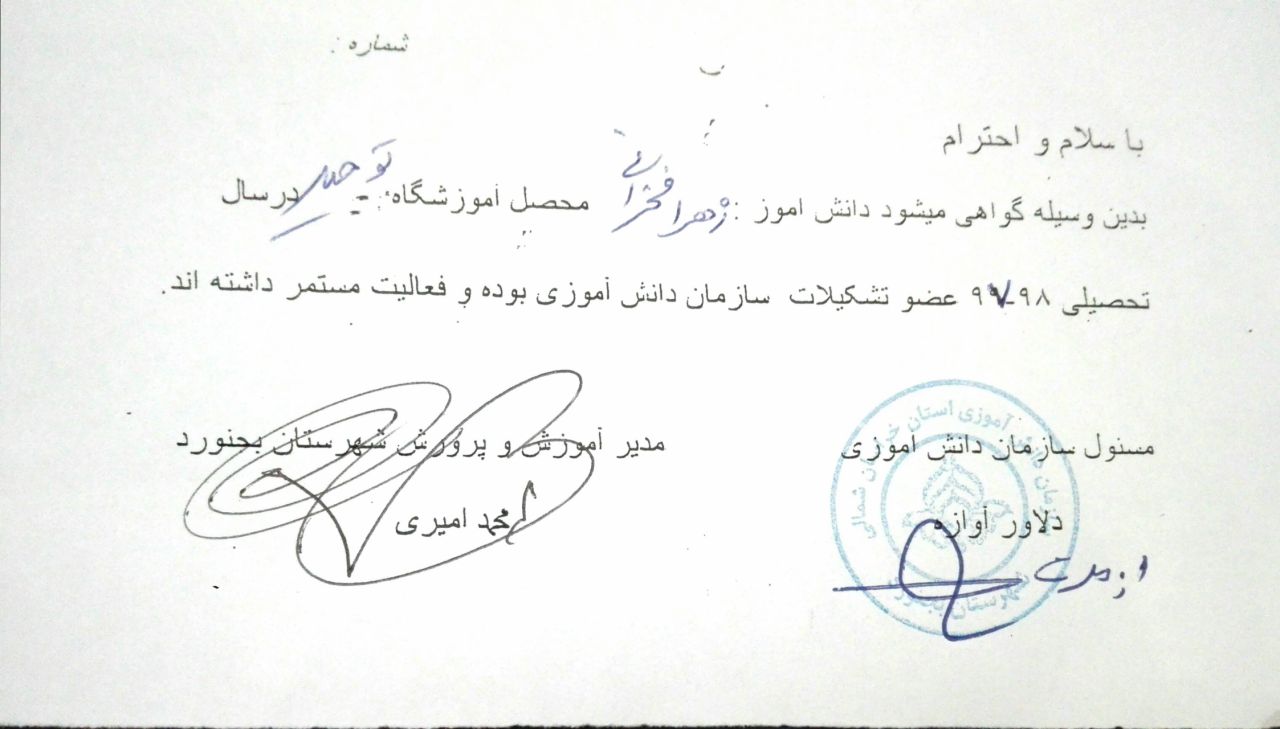 شماره :
با سلام و احترام
بدین وسیله گواهی میشود دانش اموز : زهرا فخرائی محصل آموزشگاه: توحید درسال
تحصیلی ۹۸-۹۷ عضو تشکیلات سازمان دانش آموزی بوده و فعالیت مستمر داشته اند.
مسئول سازمان دانش آموزی
مدیر آموزش و پرورش شهرستان بجنورد
دلاور آوازه
محمد امیری
سازمان دانش آموزی استان خراسان شمالی
شهرستان بجنورد